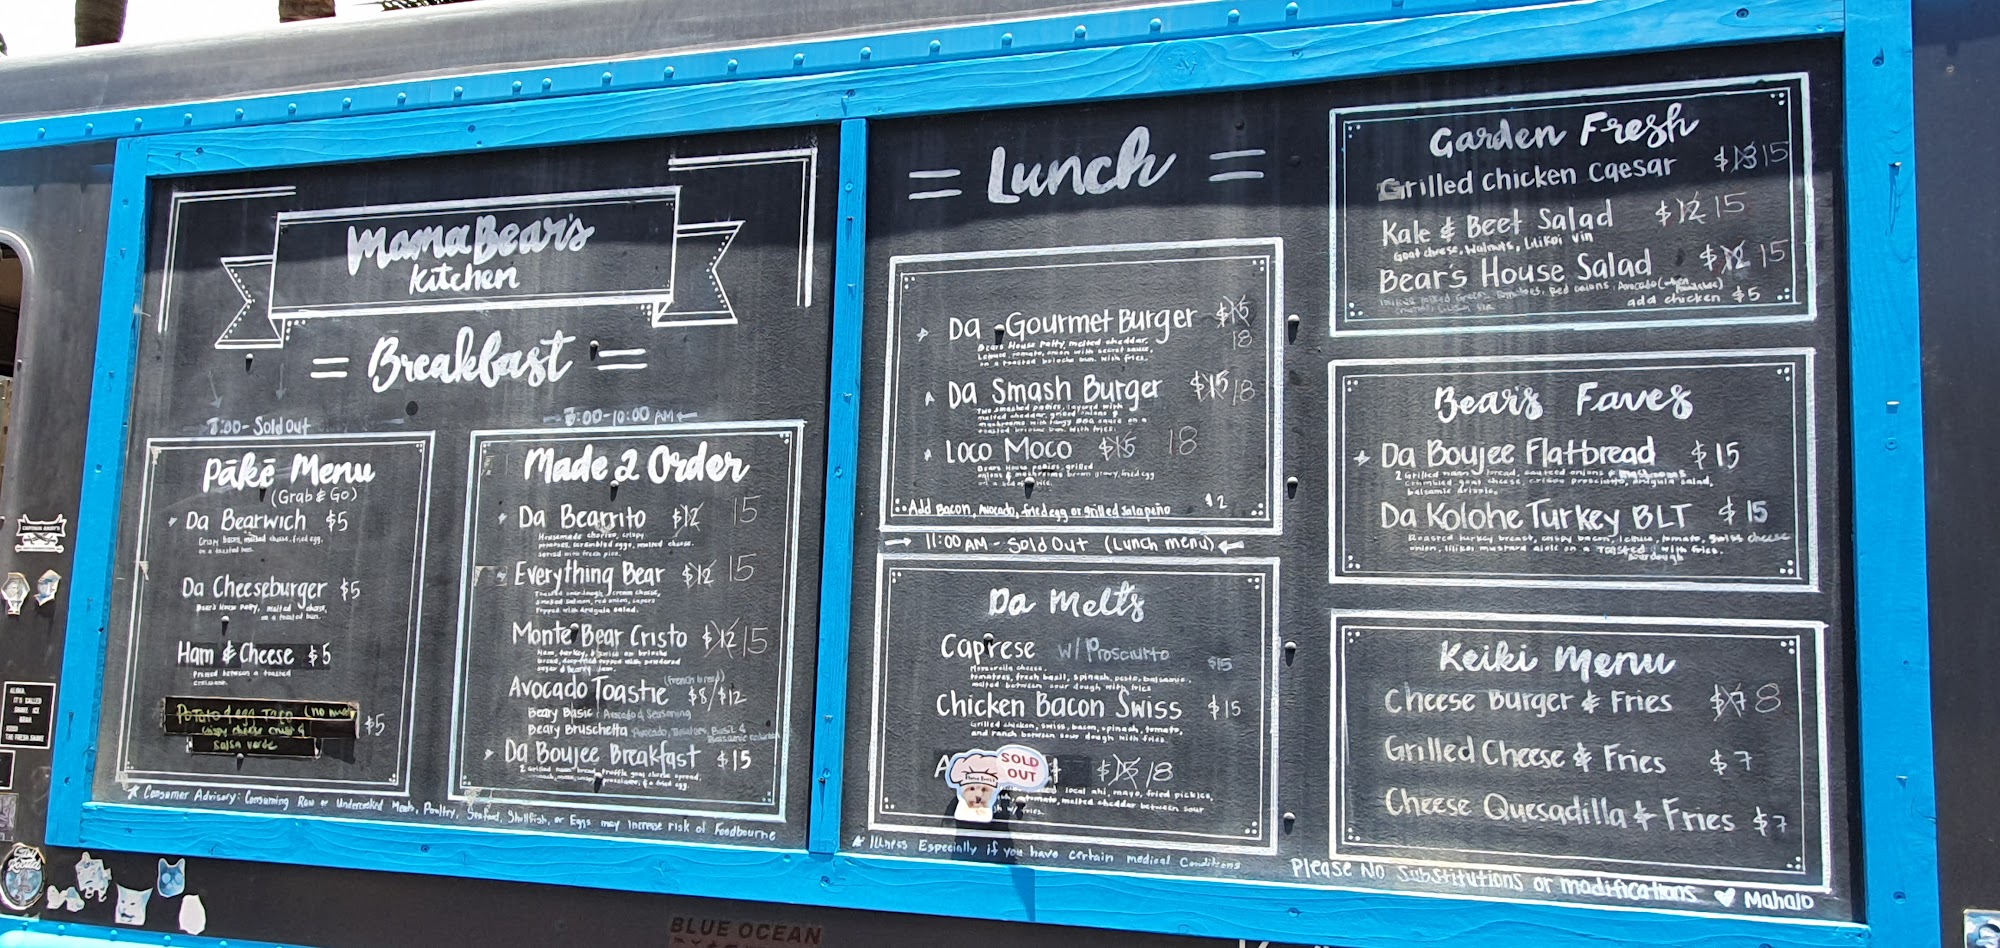 Mama Bear's
Kitchen
= Breakfast =
8:00 - Sold Out
Pākē Menu
(Grab & Go)
Da Bearwich $5
Crispy bacon, melted cheese, fried egg,
on a toasted bun.
Da Cheeseburger $5
Bear's House Patty, melted cheese,
on a toasted bun.
Ham & Cheese $5
Pressed between a toasted
croissant.
Potato & egg Taco (no meat)
crispy cheese crust &
salsa verde
$5
8:00-10:00 AM
Made 2 Order
Da Bearrito $12 15
Homemade chorizo, crispy
potatoes, scrambled eggs, melted cheese.
Served with fresh pico.
Everything Bear $12 15
Toasted sourdough, cream cheese,
smoked salmon, red onion, capers
Topped with Arugula salad.
Monte Bear Cristo $12 15
Ham, turkey, & swiss on brioche
bread, deep fried topped with powdered
sugar & berry jam.
(French bread)
Avocado Toastie $8/$12
Beary Basic: Avocado & Seasoning
Beary Bruschetta Avocado, Tomatoes, Basil &
Balsamic reduction
Da Boujee Breakfast $15
2 Grilled naan bread, truffle goat cheese spread,
prosciutto, & a fried egg.
* Consumer Advisory: Consuming Raw or Undercooked Meats, Poultry, Seafood, Shellfish, or Eggs may increase risk of Foodbourne
= Lunch =
Da Gourmet Burger $16
18
Bears House Patty, melted cheddar,
Lettuce, tomato, onion with secret sauce,
on a toasted brioche bun. With fries.
Da Smash Burger $15 18
Two smashed patties, layered with
melted cheddar, grilled onions &
mushrooms with tangy BBQ sauce on a
toasted brioche bun. With fries.
Loco Moco $16 18
Bears House patties, grilled
onions & mushrooms brown gravy, fried egg
on a bed of rice.
Add Bacon, Avocado, fried egg or grilled Jalapeño $2
11:00 AM - Sold Out (Lunch menu)
Da Melts
Caprese w/ Prosciutto $15
Mozzarella cheese,
tomatoes, fresh basil, spinach, pesto, balsamic,
melted between sour dough with fries
Chicken Bacon Swiss $15
Grilled chicken, swiss, bacon, spinach, tomato,
and ranch between sour dough with fries
A
SOLD
OUT
$15 18
local ahi, mayo, fried pickles,
tomato, melted cheddar between sour
w/ fries.
* Illness Especially if you have certain medical Conditions
Garden Fresh
Grilled Chicken Caesar $13 15
Kale & Beet Salad $12 15
Goat cheese, Walnuts, Lilikoi vin
Bear's House Salad $12 15
Red onions, Avocado
add chicken $5
Bear's Faves
Da Boujee Flatbread $15
2 Grilled naan bread, sauteed onions & mushrooms
Crumbled goat cheese, crispy prosciutto, arugula salad,
balsamic drizzle.
Da Kolohe Turkey BLT $15
Roasted turkey breast, crispy bacon, lettuce, tomato, swiss cheese
onion, lilikoi mustard aioli on a Toasted with fries.
Sourdough
Keiki Menu
Cheese Burger & Fries $7 8
Grilled Cheese & Fries $7
Cheese Quesadilla & Fries $7
Please No Substitutions or modifications ♥ Mahalo
BLUE OCEAN